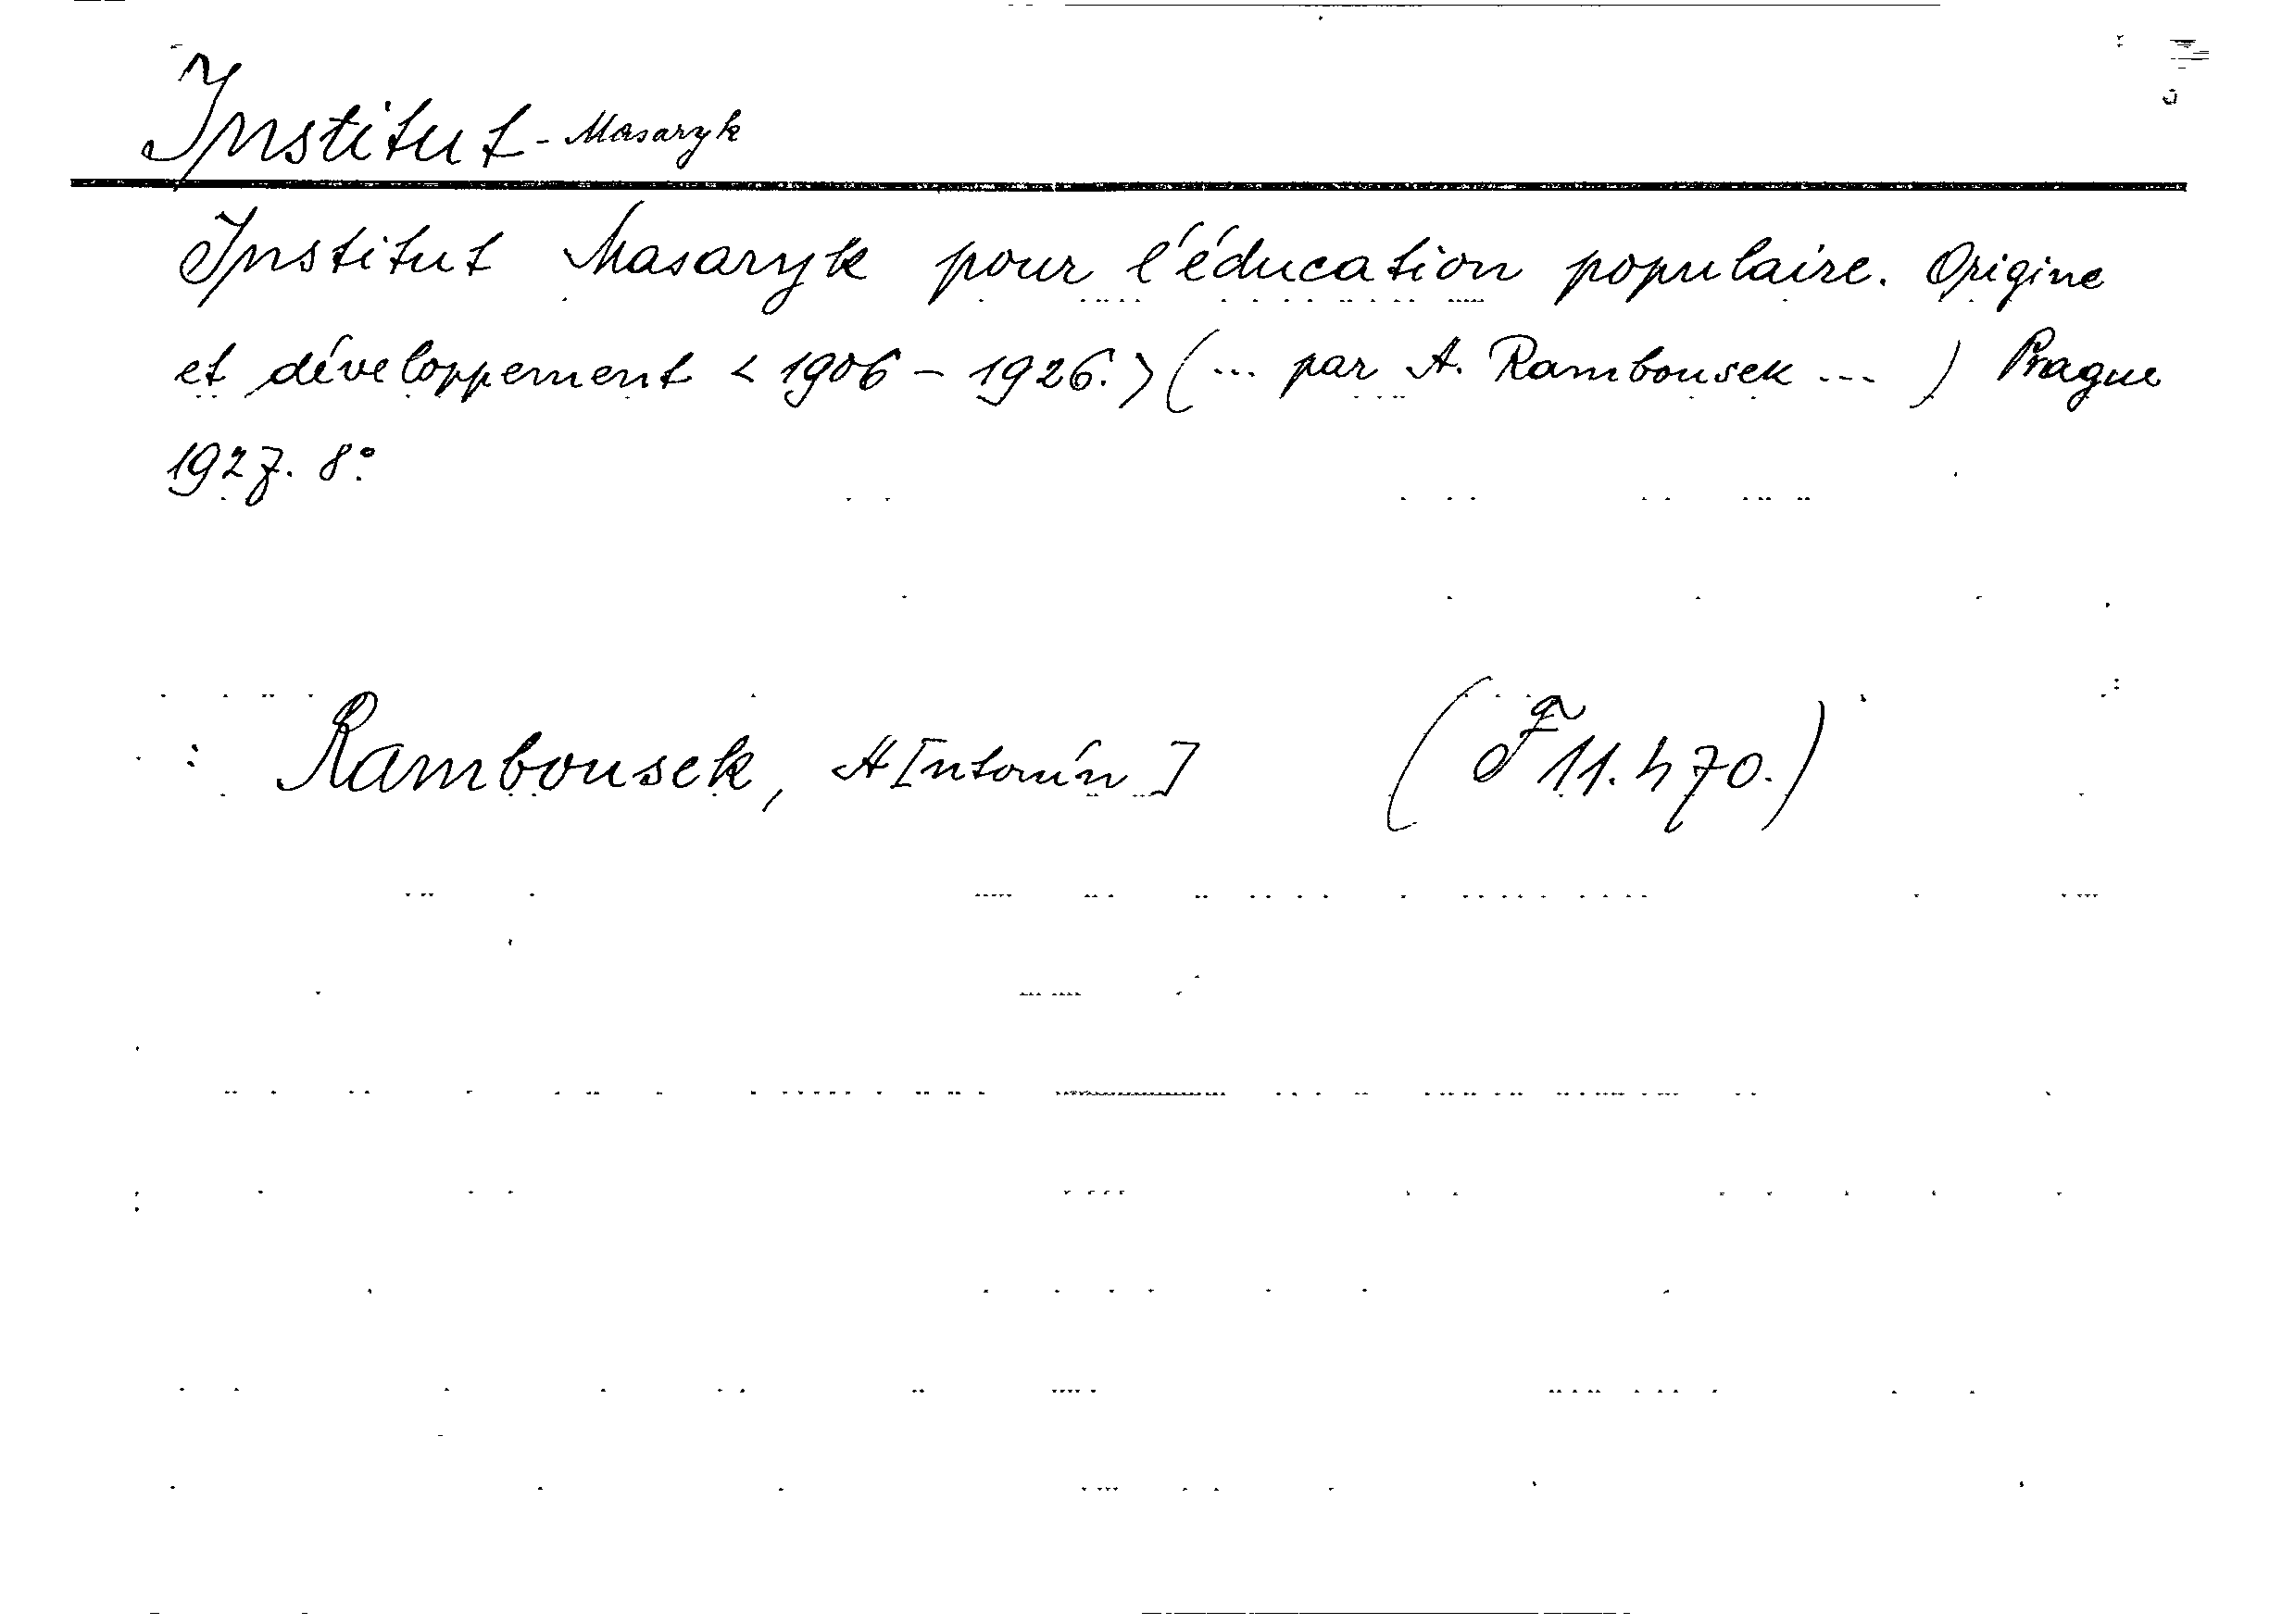 Institut - Masaryk
Institut Masaryk pour l'éducation populaire. Origine
et développement < 1906 - 1926.> (... par A. Rambousek ... ) Prague
1927. 8°.
Rambousek, A[ntonín] (F 11.470.)